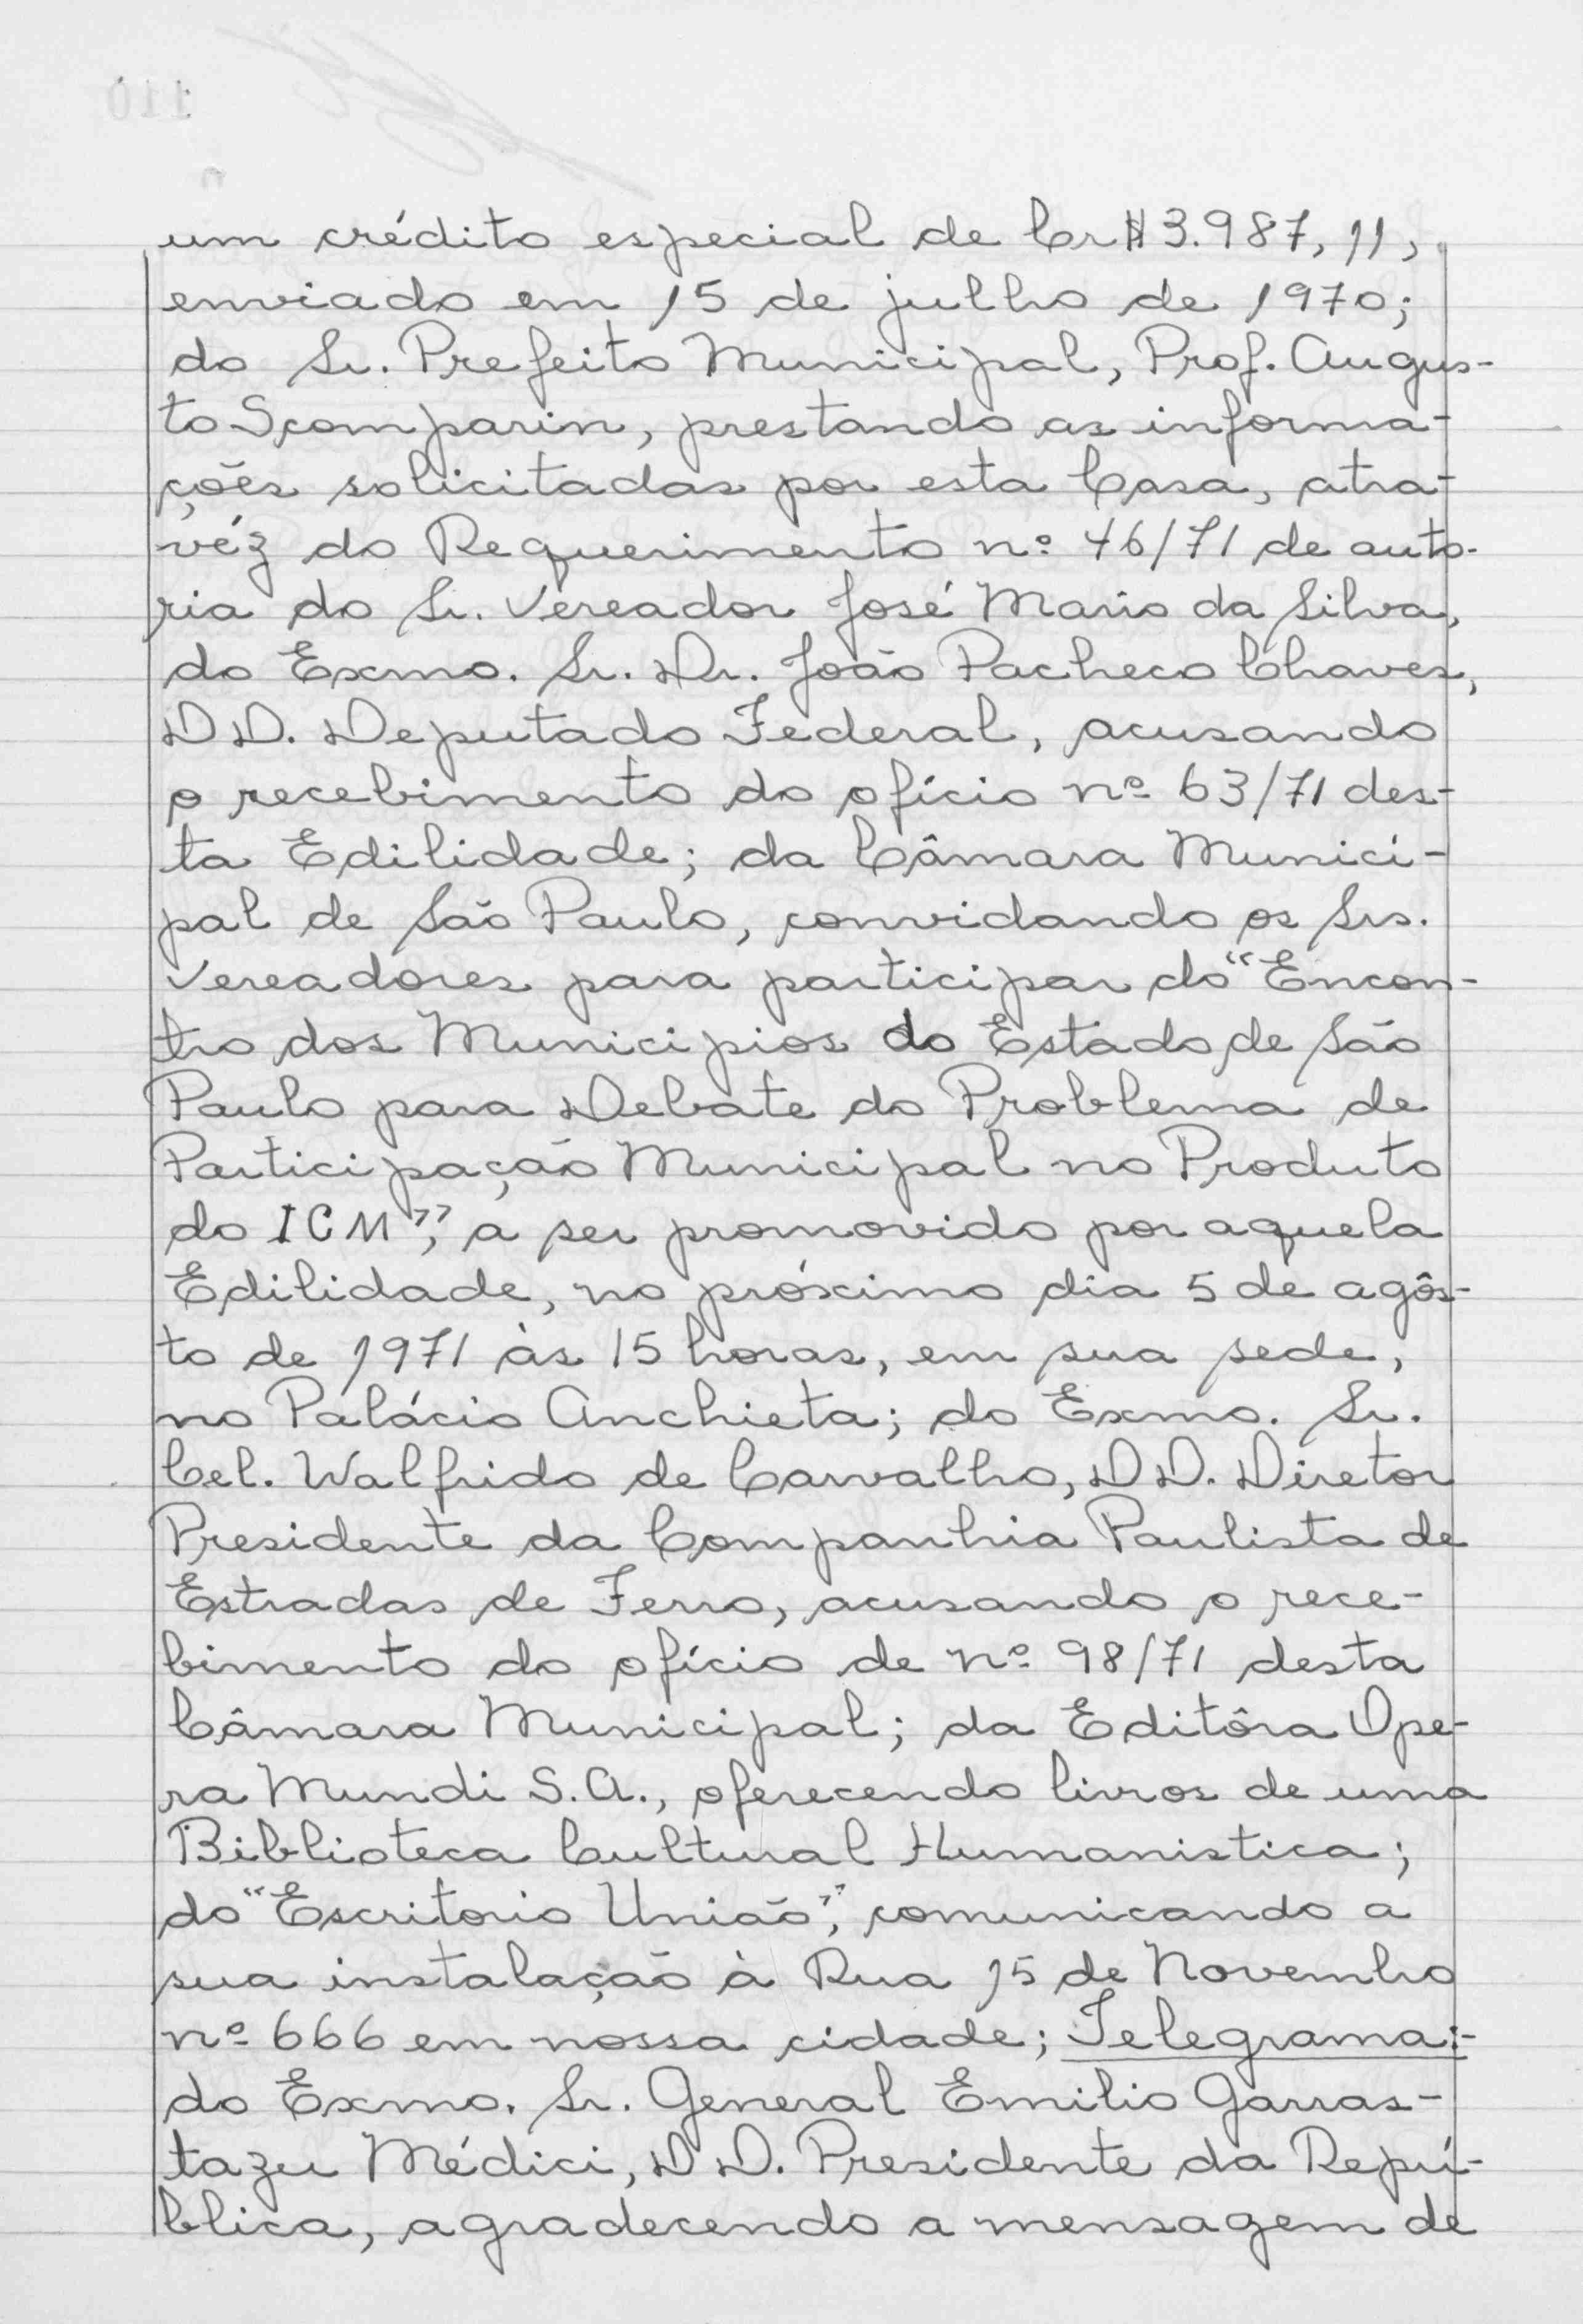 um crédito especial de Cr$ 3.987,11,
enviado em 15 de julho de 1970;
do Sr. Prefeito Municipal, Prof. Augus-
to Scomparin, prestando as informa-
ções solicitadas por esta Casa, atra-
véz do Requerimento nº 46/71 de auto-
ria do Sr. Vereador José Mario da Silva,
do Exmo. Sr. Dr. João Pacheco Chaves,
DD. Deputado Federal, acusando
o recebimento do ofício nº 63/71 des-
ta Edilidade; da Câmara Munici-
pal de São Paulo, convidando os Srs.
Vereadores para participar do "Encon-
tro dos Municipios do Estado de São
Paulo para Debate do Problema de
Participação Municipal no Produto
do ICM", a ser promovido por aquela
Edilidade, no próximo dia 5 de agôs-
to de 1971 às 15 horas, em sua sede,
no Palácio Anchieta; do Exmo. Sr.
Cel. Walfrido de Carvalho, DD. Diretor
Presidente da Companhia Paulista de
Estradas de Ferro, acusando o rece-
bimento do ofício de nº 98/71 desta
Câmara Municipal; da Editôra Ope-
ra Mundi S.A., oferecendo livros de uma
Biblioteca Cultural Humanistica;
do "Escritorio União", comunicando a
sua instalação à Rua 15 de Novembro
nº 666 em nossa cidade; Telegrama:-
do Exmo. Sr. General Emilio Garras-
tazu Médici, DD. Presidente da Repú-
blica, agradecendo a mensagem de